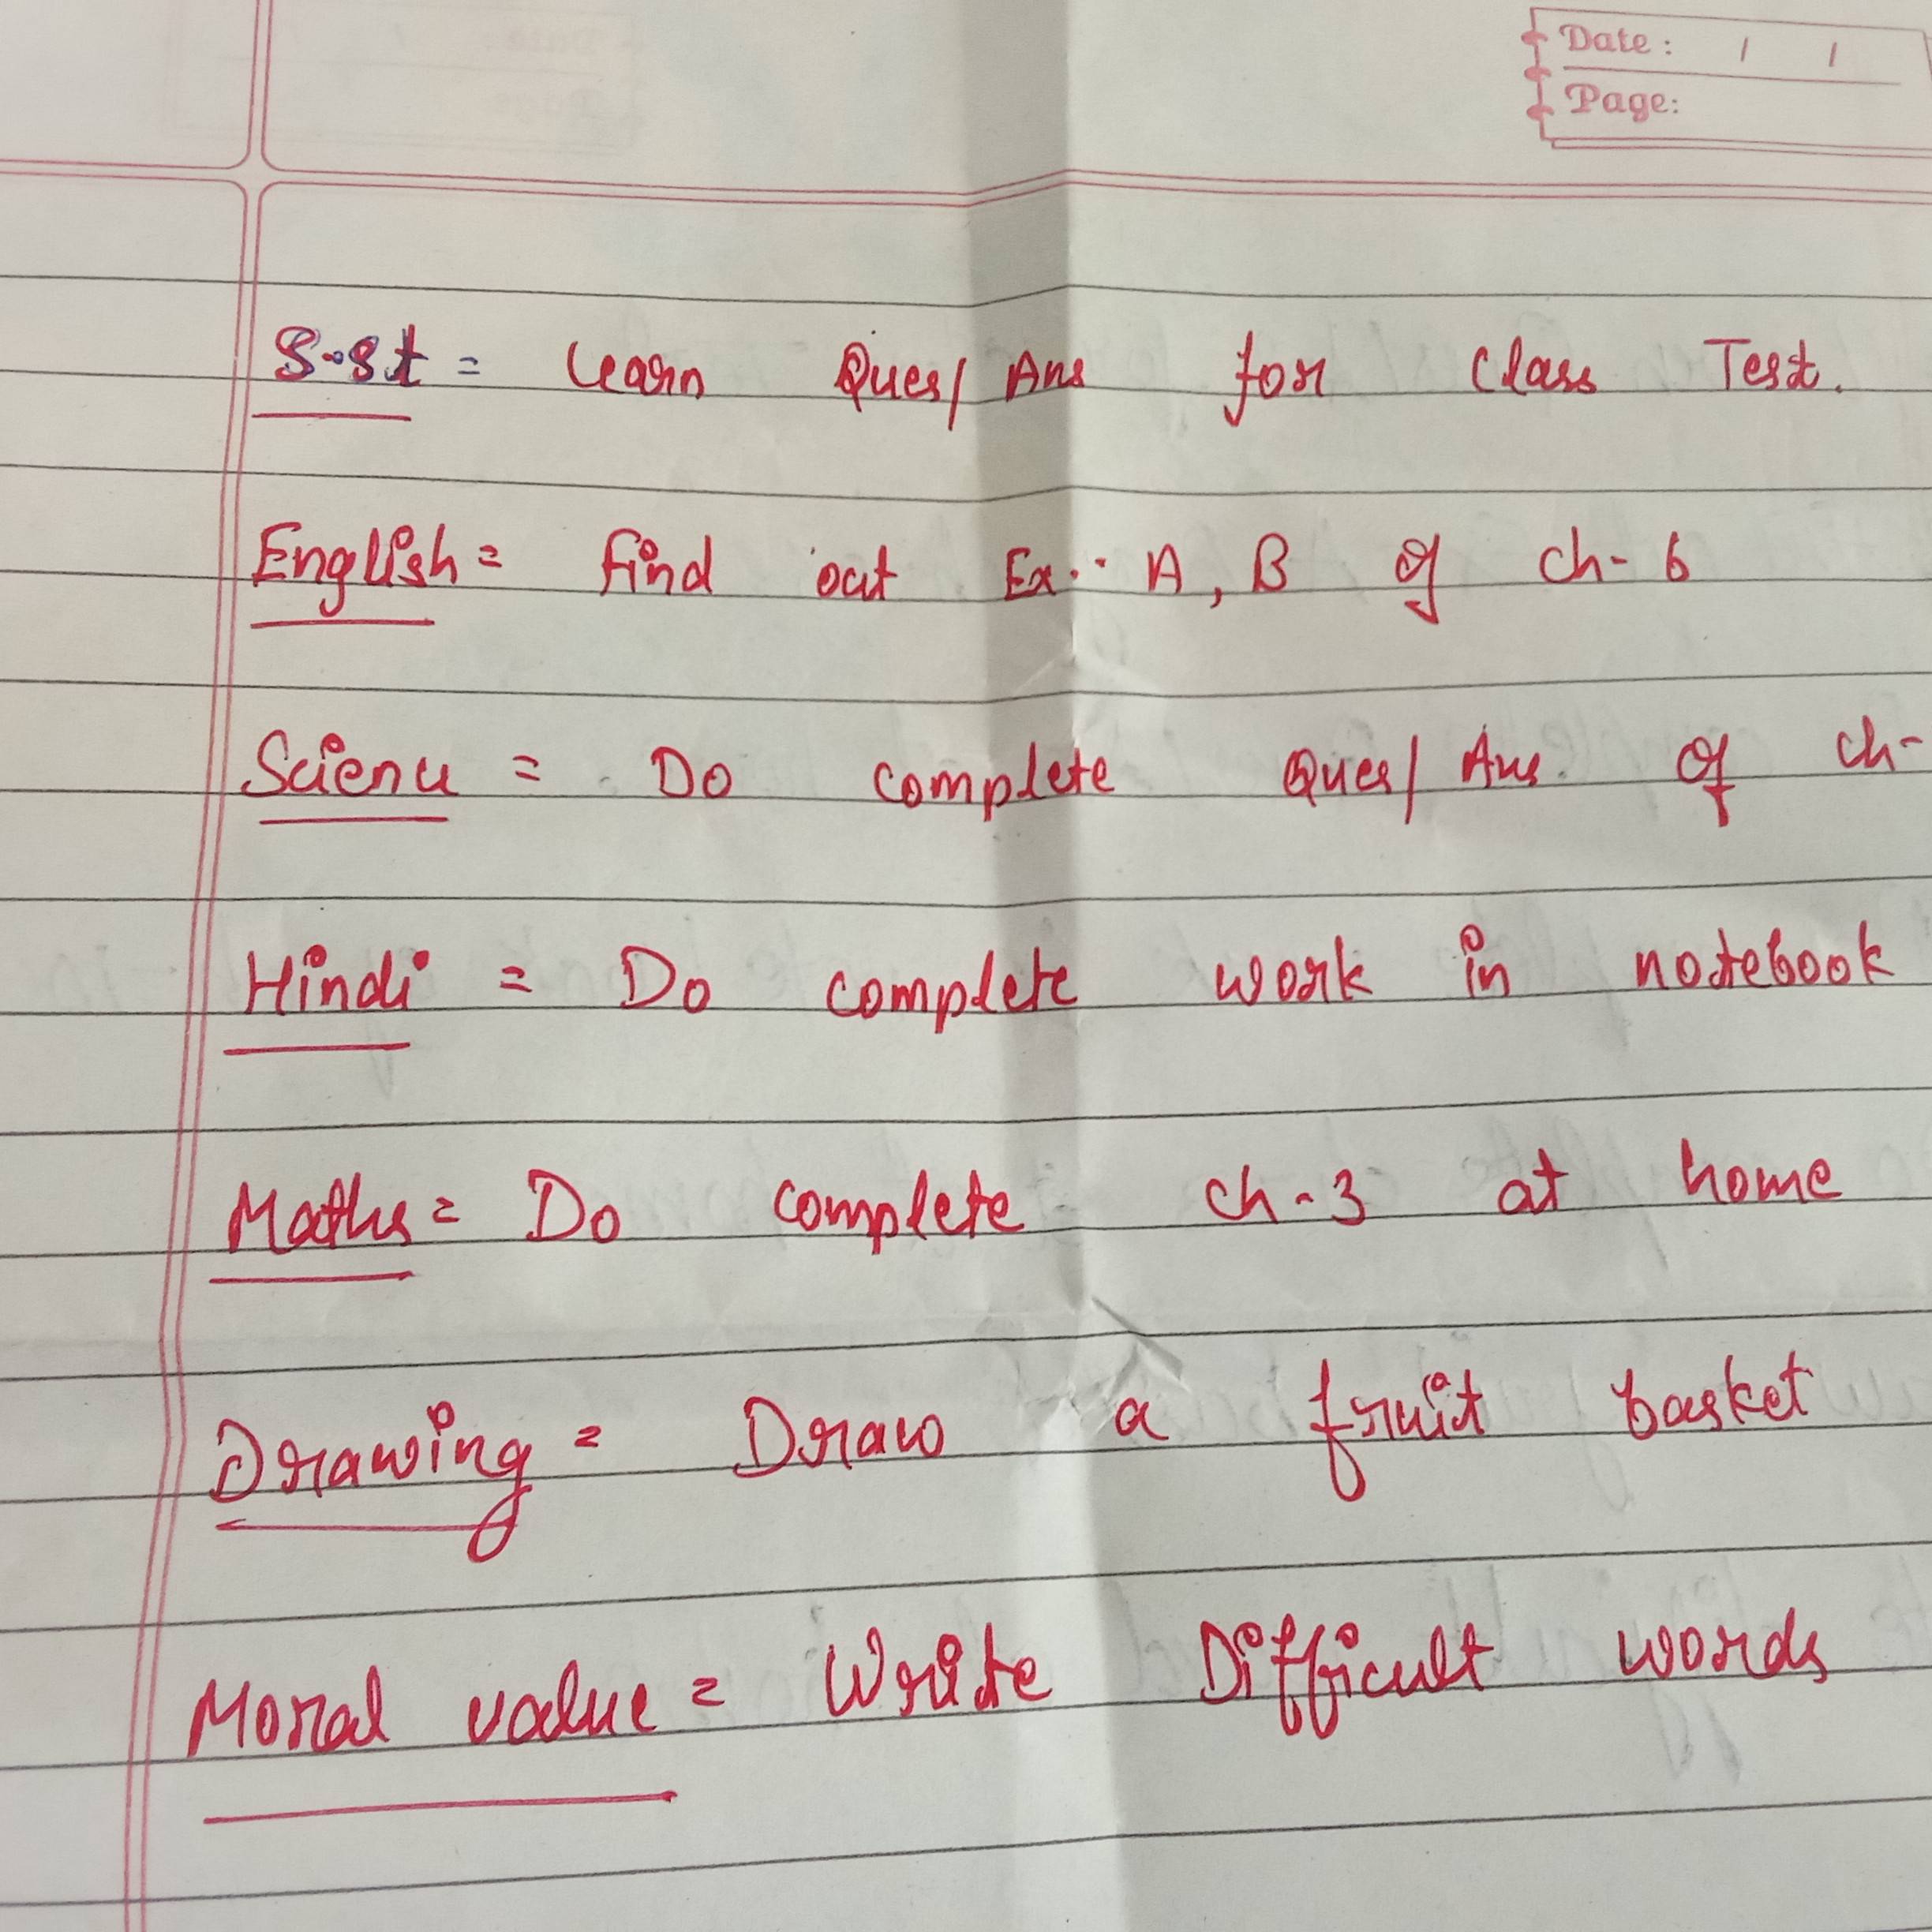 Date: / /
Page:
S.st = Learn Ques/Ans for Class Test.
English = find out Ex.. A, B of ch-6
Science = Do complete Ques/Ans. of ch-
Hindi = Do complete work in notebook
Maths = Do complete ch-3 at home
Drawing = Draw a fruit basket
Moral value = Write Difficult words